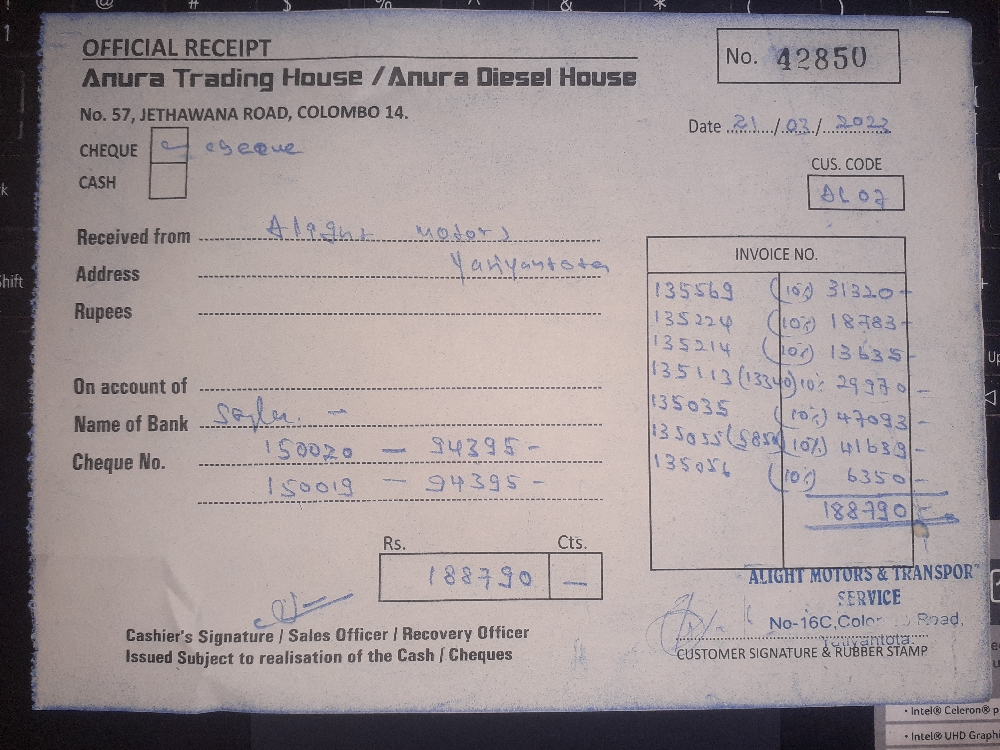 OFFICIAL RECEIPT
No. 42850
Anura Trading House / Anura Diesel House
No. 57, JETHAWANA ROAD, COLOMBO 14.
Date 21/03/2022
CHEQUE cheque
CUS. CODE
CASH
AL 07
Received from Alight Motors
Address Yatiyantota
INVOICE NO.
Rupees
135569 (10%) 31320-
135224 (10%) 18783-
135214 (10%) 13635-
135113 (13340) 10% 29970-
On account of
135035 (10%) 47093-
Name of Bank -
135055 (5850) (10%) 41639-
Cheque No. 150020 - 94395-
135056 (10%) 6350-
150019 - 94395-
188790-
Rs. Cts.
188790 -
ALIGHT MOTORS & TRANSPOR
SERVICE
No-16C, Road,
Yatiyantota.
Cashier's Signature / Sales Officer / Recovery Officer
CUSTOMER SIGNATURE & RUBBER STAMP
Issued Subject to realisation of the Cash / Cheques
• Intel® Celeron® p
• Intel® UHD Graph